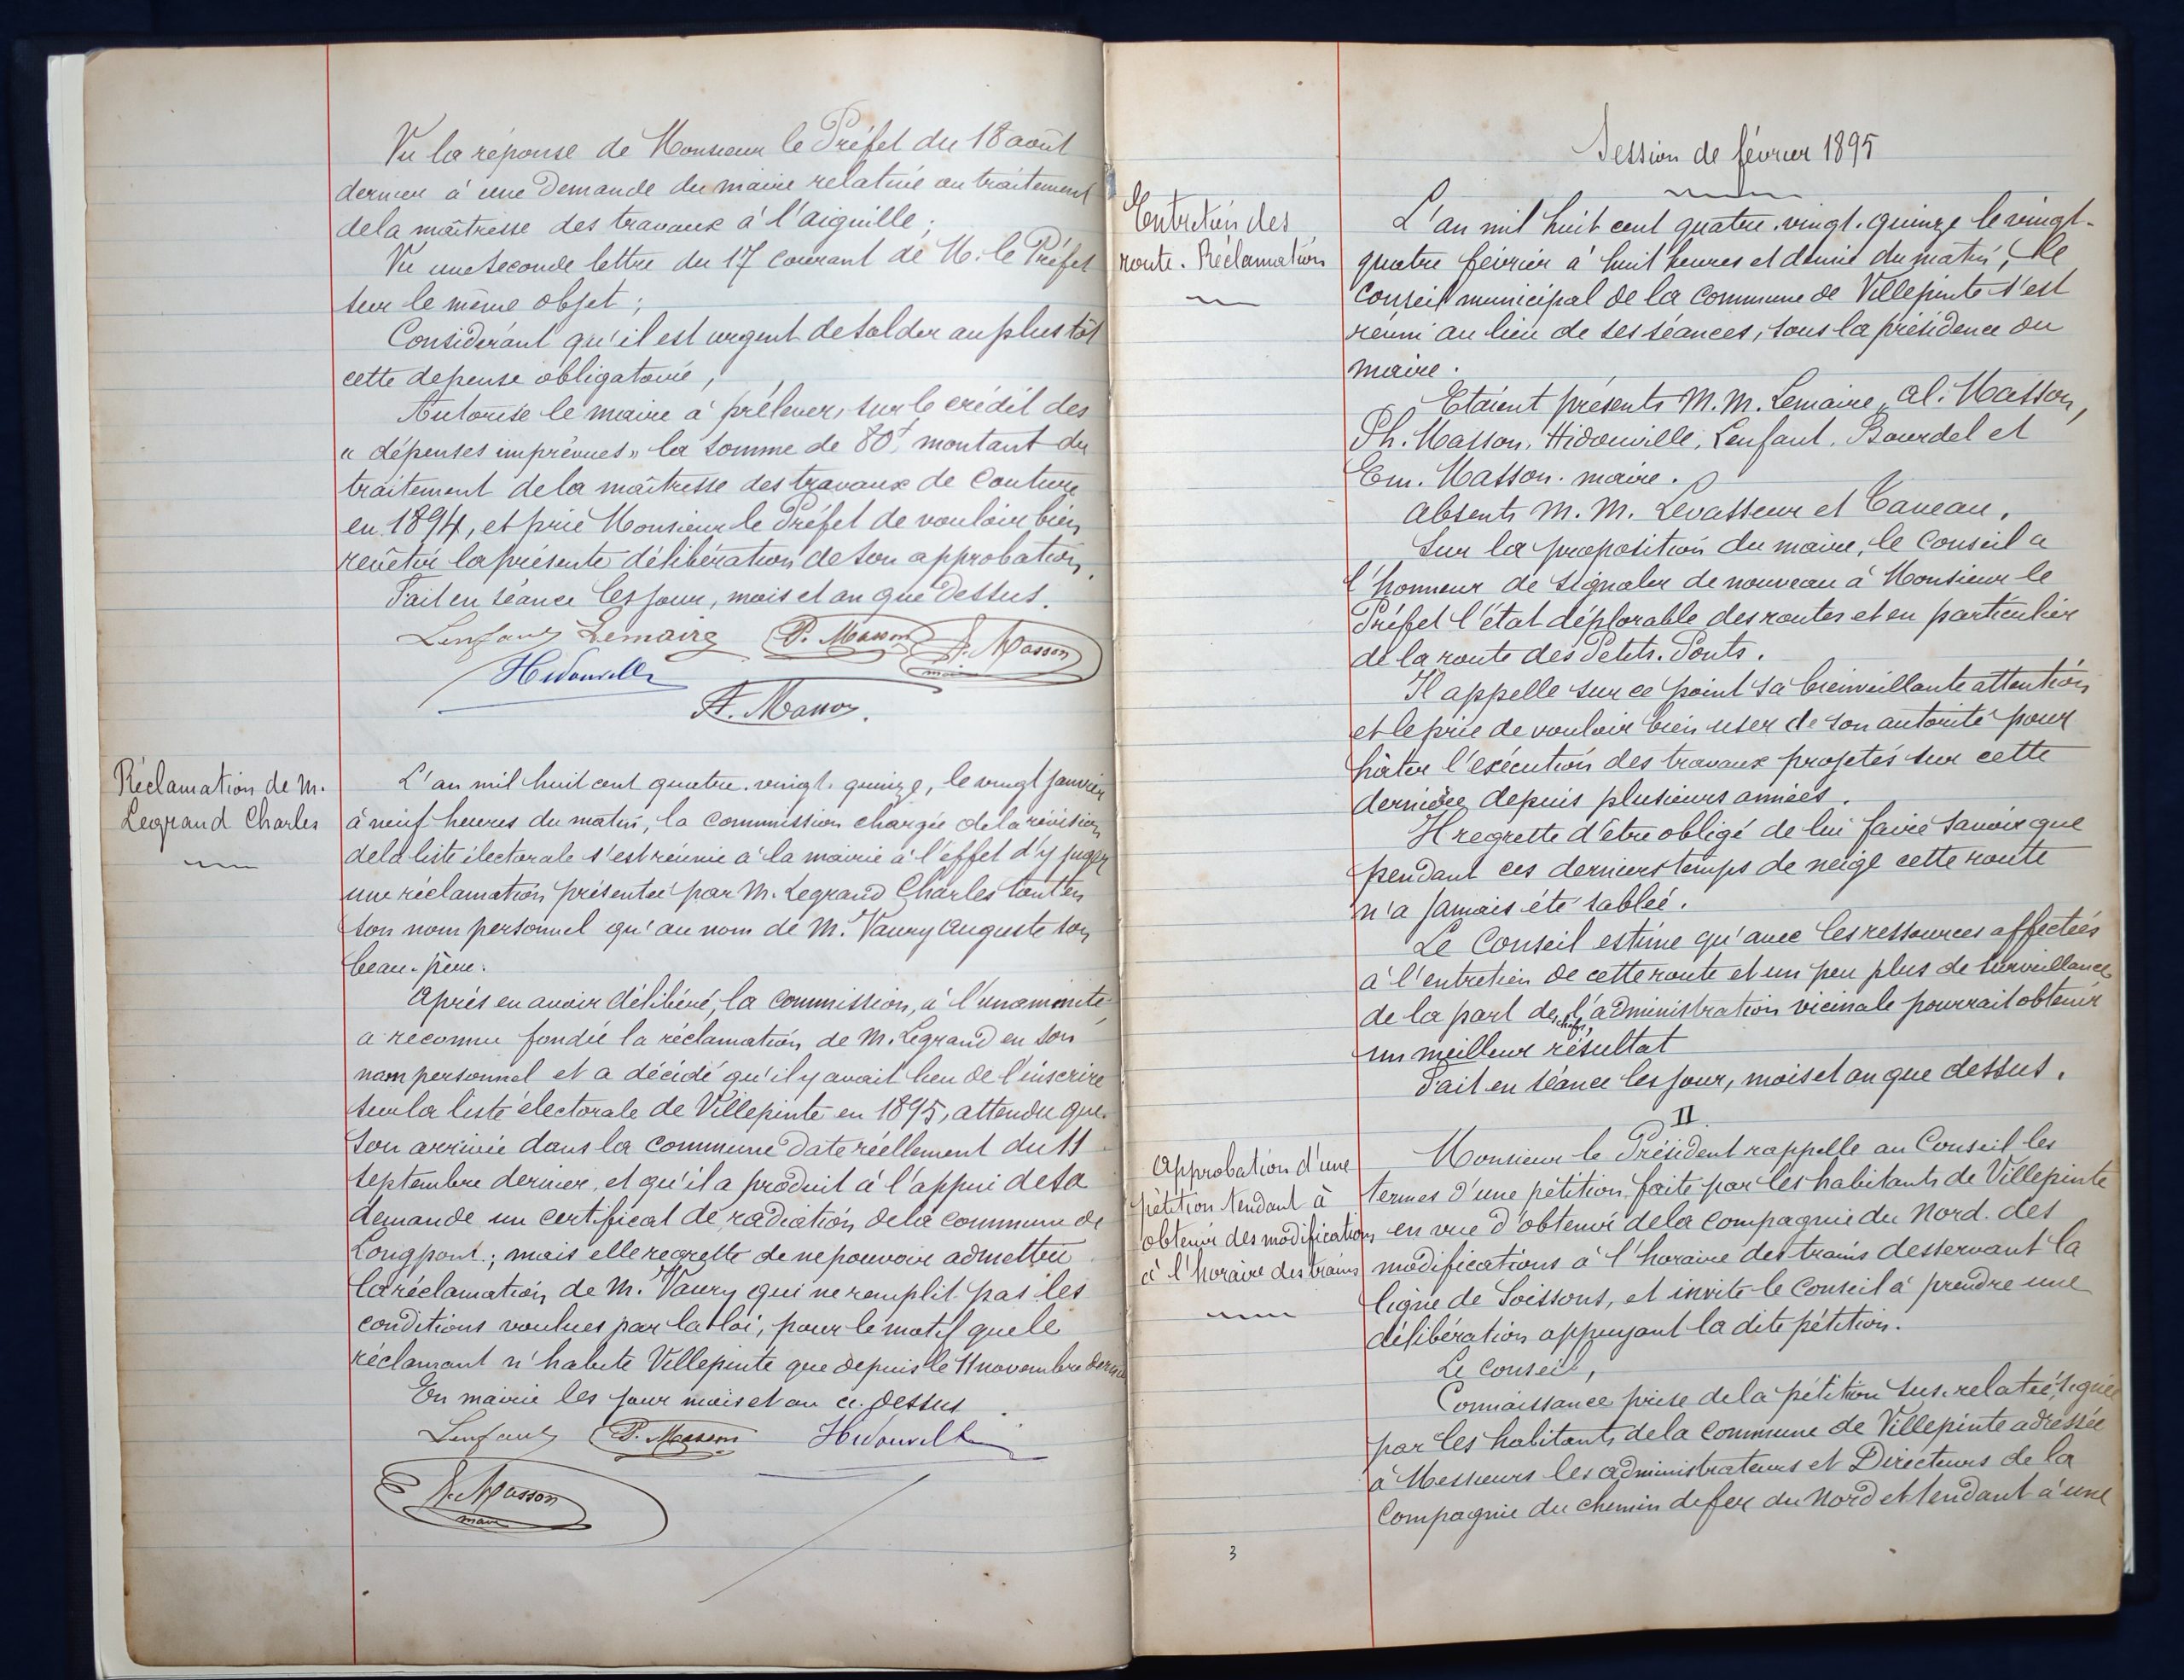 Vu la réponse de Monsieur le Préfet du 18 août
dernier à une Demande du maire relative au traitement
de la maîtresse des travaux à l'aiguille ;
Vu une seconde lettre du 17 courant de M. le Préfet
sur le même objet ;
Considérant qu'il est urgent de solder au plus tôt
cette dépense obligatoire ,
Autorise le maire à prélever, sur le crédit des
« dépenses imprévues » la somme de 80f, montant du
traitement de la maîtresse des travaux de Couture
en 1894, et prie Monsieur le Préfet de vouloir bien
revêtir la présente délibération de son approbation.
Fait en séance les jour, mois et an que Dessus.
Lenfant Lemaire P. Masson A. Masson
maire
Hidouville
A. Masson.
Réclamation de M.
Legrand Charles
L'an mil huit cent quatre-vingt-quinze, le vingt janvier
à neuf heures du matin, la Commission chargée de la révision
de la liste électorale s'est réunie à la mairie à l'effet d'y juger
une réclamation présentée par M. Legrand Charles tant en
son nom personnel qu'au nom de M. Vaury Auguste son
beau-père.
Après en avoir délibéré, la Commission, à l'unanimité
a reconnu fondée la réclamation de M. Legrand en son
nom personnel et a décidé qu'il y avait lieu de l'inscrire
sur la liste électorale de Villepinte en 1895, attendu que
son arrivée dans la commune Date réellement du 11
septembre dernier, et qu'il a produit à l'appui de sa
demande un certificat de radiation de la commune de
Longpont ; mais elle regrette de ne pouvoir admettre
la réclamation de M. Vaury qui ne remplit pas les
conditions voulues par la loi, pour le motif que le
réclamant n'habite Villepinte que depuis le 11 novembre dernier
En mairie les jour mois et an ci-Dessus
Lenfant P. Masson Hidouville
A. Masson
maire
Session de février 1895
Entretien des
route. Réclamation
L'an mil huit cent quatre-vingt-quinze le vingt-
quatre février à huit heures et demie du matin, le
Conseil municipal de la Commune de Villepinte s'est
réuni au lieu de ses séances, sous la présidence du
maire.
Etaient présents M.M. Lemaire, Al. Masson,
Ph. Masson, Hidouville, Lenfant, Bourdel et
Em. Masson. maire.
Absents M.M. Levasseur et Caveau.
Sur la proposition du maire, le Conseil a
l'honneur de signaler de nouveau à Monsieur le
Préfet l'état déplorable des routes et en particulier
de la route des Petits-Ponts.
Il appelle sur ce point sa bienveillante attention
et le prie de vouloir bien user de son autorité pour
hâter l'exécution des travaux projetés sur cette
dernière depuis plusieurs années.
Il regrette d'être obligé de lui faire savoir que
pendant ces derniers temps de neige cette route
n'a jamais été sablée.
Le Conseil estime qu'avec les ressources affectées
à l'entretien de cette route et un peu plus de surveillance
de la part des chefs, l'administration vicinale pourrait obtenir
un meilleur résultat
Fait en séance les jour, mois et an que dessus.
II
Approbation d'une
pétition tendant à
obtenir des modifications
à l'horaire des trains
Monsieur le Président rappelle au Conseil les
termes d'une pétition faite par les habitants de Villepinte
en vue d'obtenir de la Compagnie du Nord des
modifications à l'horaire des trains desservant la
ligne de Soissons, et invite le Conseil à prendre une
délibération appuyant la dite pétition.
Le Conseil,
Connaissance prise de la pétition sus-relatée, signée
par les habitants de la Commune de Villepinte adressée
à Messieurs les administrateurs et Directeurs de la
Compagnie du Chemin de fer du Nord et tendant à une
3